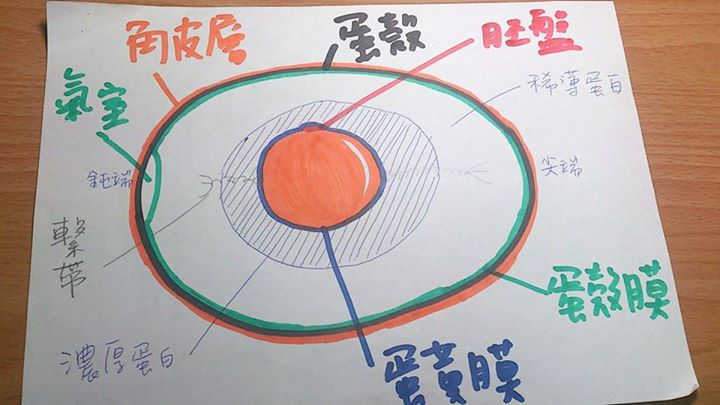 角皮層
蛋殼
旺盤
氣室
稀薄蛋白
鈍端
尖端
繫帶
蛋殼膜
濃厚蛋白
蛋黃膜